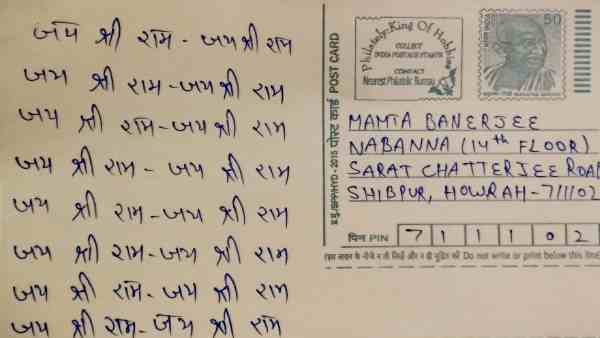 जय श्री राम - जय श्री राम
जय श्री राम - जय श्री राम
जय श्री राम - जय श्री राम
जय श्री राम - जय श्री राम
जय श्री राम - जय श्री राम
जय श्री राम - जय श्री राम
जय श्री राम - जय श्री राम
जय श्री राम - जय श्री राम
पोस्ट कार्ड POST CARD
Philately: King Of Hobbies
COLLECT
INDIA POSTAGE STAMPS
CONTACT
Nearest Philatelic Bureau
50
MAMTA BANERJEE
NABANNA (14th FLOOR)
SARAT CHATTERJEE ROAD
SHIBPUR, HOWRAH-711102
पिन PIN 7 1 1 1 0 2
(इस लाइन के नीचे न तो लिखें और न ही मुद्रित करें Do not write or print below this line